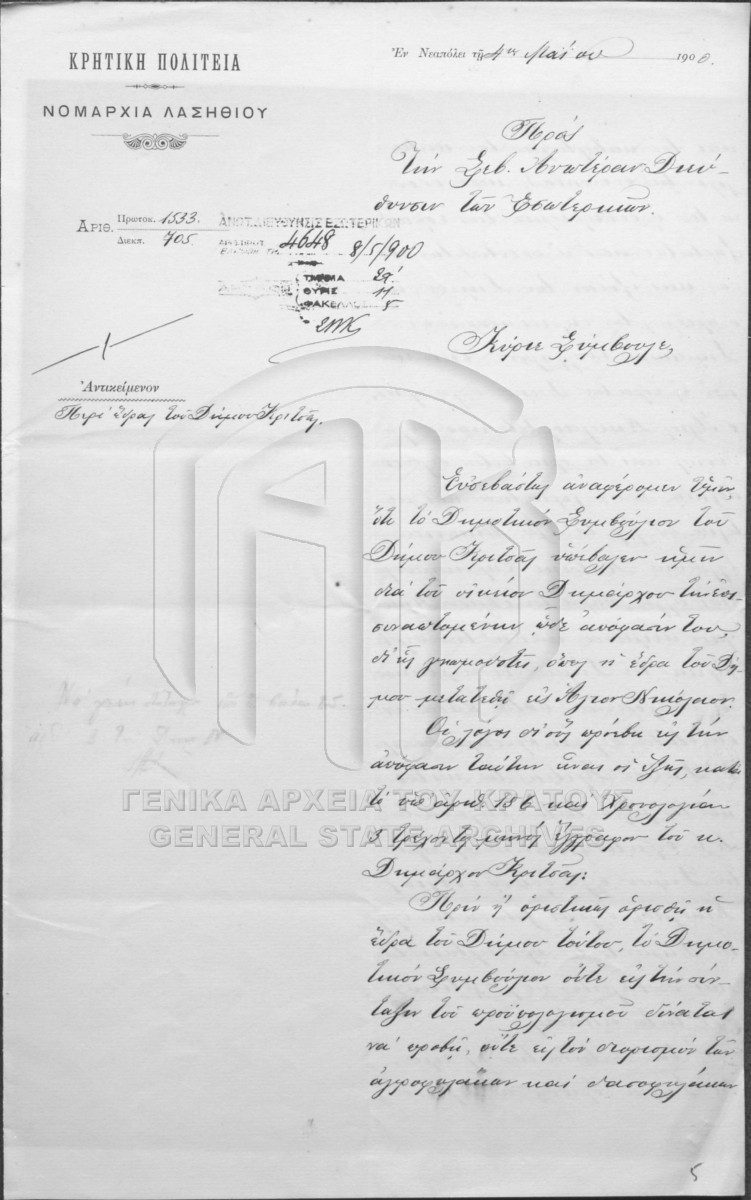 ΚΡΗΤΙΚΗ ΠΟΛΙΤΕΙΑ
ΝΟΜΑΡΧΙΑ ΛΑΣΗΘΙΟΥ
Ἐν Νεαπόλει τῇ 4ῃ Μαΐου 1900.
Πρὸς
Τὴν Σεβ. Ἀνωτέραν Διεύ-
θυνσιν τῶν Ἐσωτερικῶν.
ΑΡΙΘ. Πρωτοκ. 1533.
Διεκπ. 705.
ΑΝΩΤ. ΔΙΕΥΘΥΝΣΙΣ ΕΣΩΤΕΡΙΚΩΝ
4648 8/5/900
ΤΜΗΜΑ
ΘΥΡΙΣ 11
ΦΑΚΕΛΛΟΣ 5
Κύριε Σύμβουλε,
Ἀντικείμενον
Περὶ ἕδρας τοῦ Δήμου Κριτσᾶς.
Εὐσεβάστως ἀναφέρομεν Ὑμῖν,
ὅτι τὸ Δημοτικὸν Συμβούλιον τοῦ
Δήμου Κριτσᾶς ὑπέβαλεν ἡμῖν
διὰ τοῦ οἰκείου Δημάρχου τὴν ἐπι-
συναπτομένην ὧδε ἀπόφασίν του,
δι' ἧς γνωμοδοτεῖ, ὅπως ἡ ἕδρα τοῦ Δή-
μου μετατεθῇ εἰς Ἅγιον Νικόλαον.
Οἱ λόγοι δι' οὓς προέβη εἰς τὴν
ἀπόφασιν ταύτην εἶναι οἱ ἑξῆς, κατὰ
τὸ ὑπ' ἀριθ. 186 καὶ χρονολογίαν
3 τρέχοντος μηνὸς ἔγγραφον τοῦ κ.
Δημάρχου Κριτσᾶς:
Πρὶν ἢ ὁριστικῶς ὁρισθῇ ἡ
ἕδρα τοῦ Δήμου τούτου, τὸ Δημο-
τικὸν Συμβούλιον οὔτε εἰς τὴν σύν-
ταξιν τοῦ προϋπολογισμοῦ δύναται
νὰ προβῇ, οὔτε εἰς τὸν διορισμὸν τῶν
ἀγροφυλάκων καὶ δασοφυλάκων
ΓΕΝΙΚΑ ΑΡΧΕΙΑ ΤΟΥ ΚΡΑΤΟΥΣ
GENERAL STATE ARCHIVES
5